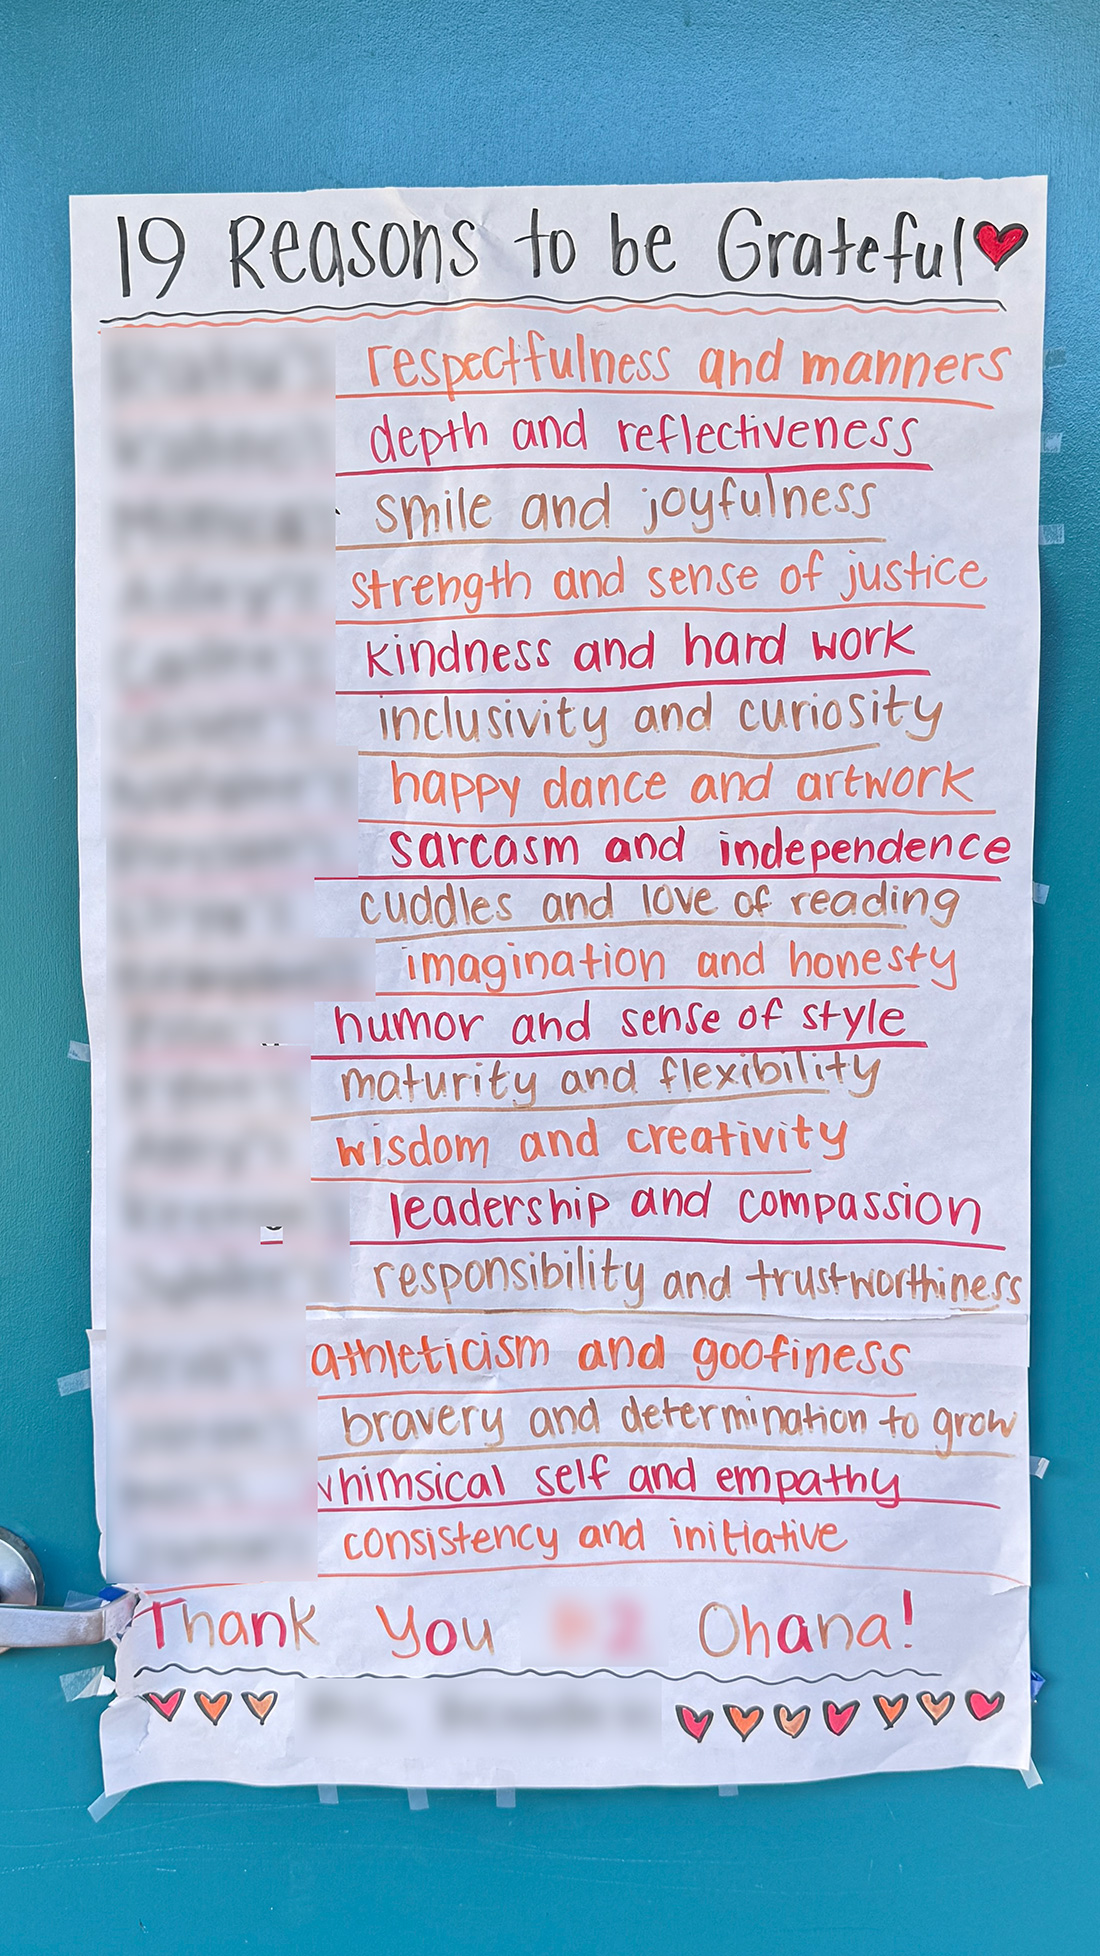 19 Reasons to be Grateful
respectfulness and manners
depth and reflectiveness
smile and joyfulness
strength and sense of justice
kindness and hard work
inclusivity and curiosity
happy dance and artwork
sarcasm and independence
cuddles and love of reading
imagination and honesty
humor and sense of style
maturity and flexibility
wisdom and creativity
leadership and compassion
responsibility and trustworthiness
athleticism and goofiness
bravery and determination to grow
whimsical self and empathy
consistency and initiative
Thank you Ohana!